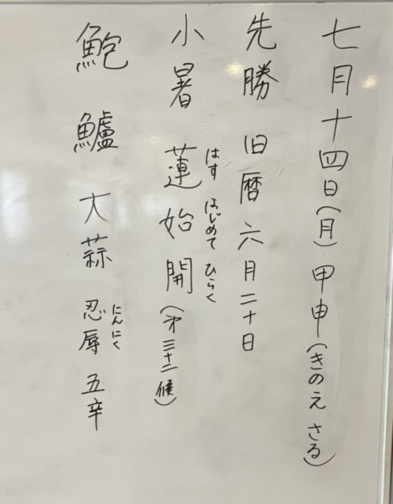 七月十四日(月)甲申(きのえ、さる)
先勝 旧暦 六月二十日
小暑 蓮始開(第三十二候)
はす はじめて ひらく
鮑 鱸 大蒜 忍辱 五辛
にんにく